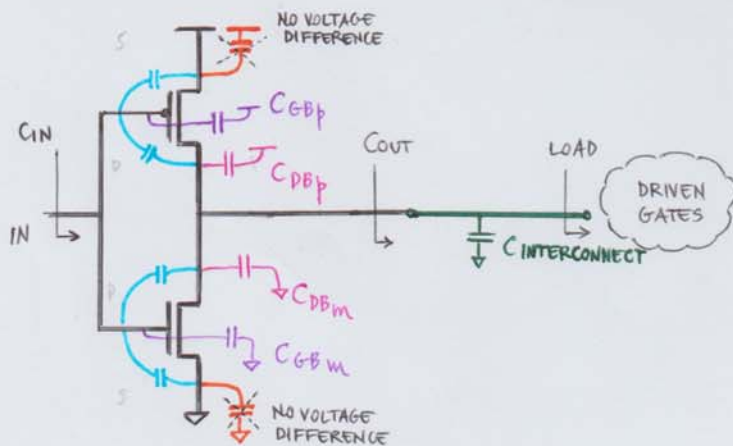 S
NO VOLTAGE
DIFFERENCE
CGBp
CIN
D
CDBp
COUT
LOAD
DRIVEN
GATES
IN
CINTERCONNECT
D
CDBm
CGBm
S
NO VOLTAGE
DIFFERENCE